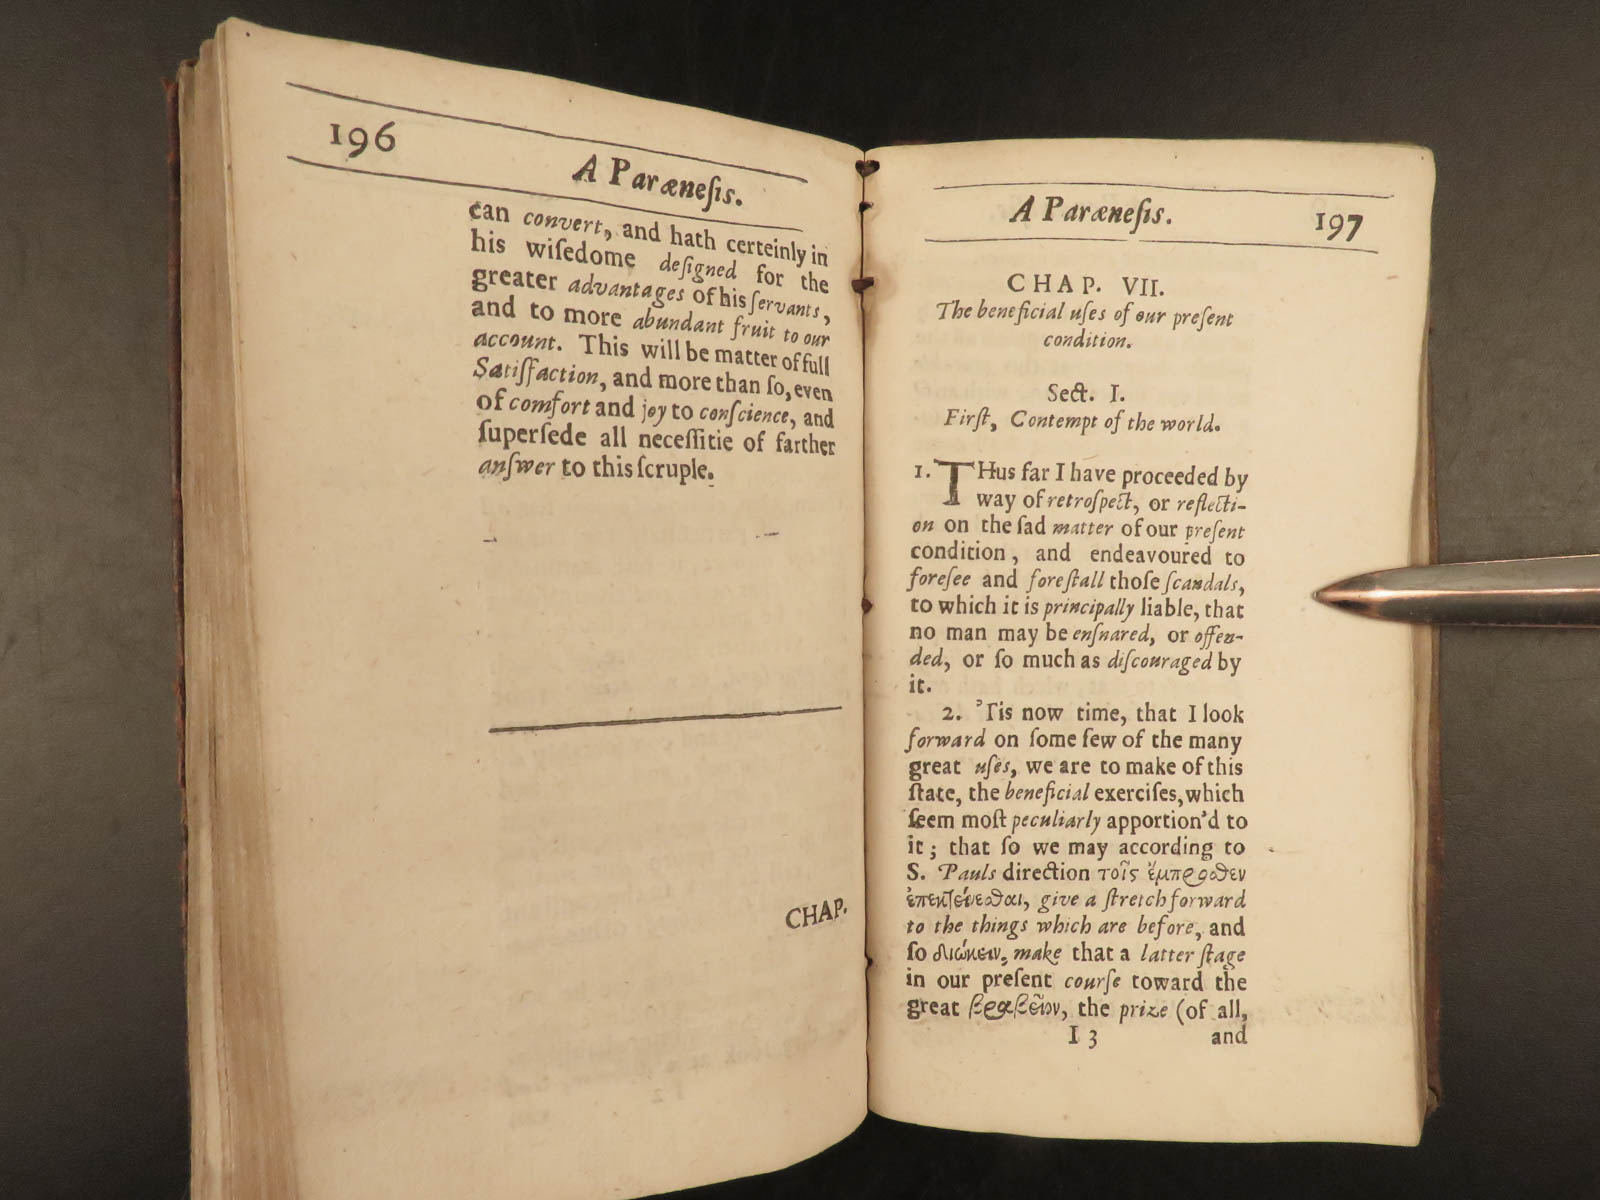 196
A Paræneſis.
can convert, and hath certeinly in
his wiſedome deſigned for the
greater advantages of his ſervants,
and to more abundant fruit to our
account. This will be matter of full
Satiſfaction, and more than ſo, even
of comfort and joy to conſcience, and
ſuperſede all neceſſitie of farther
anſwer to this ſcruple.
CHAP.
A Paræneſis.
197
CHAP. VII.
The beneficial uſes of our preſent
condition.
Sect. I.
Firſt, Contempt of the world.
1. THus far I have proceeded by
way of retroſpect, or reflecti-
on on the ſad matter of our preſent
condition, and endeavoured to
foreſee and foreſtall thoſe ſcandals,
to which it is principally liable, that
no man may be enſnared, or offen-
ded, or ſo much as diſcouraged by
it.
2. 'Tis now time, that I look
forward on ſome few of the many
great uſes, we are to make of this
ſtate, the beneficial exerciſes, which
ſeem moſt peculiarly apportion'd to
it; that ſo we may according to
S. Pauls direction τοῖς ἔμπροϑεν
ἐπεκτείνεϑαι, give a ſtretch forward
to the things which are before, and
ſo διώκειν, make that a latter ſtage
in our preſent courſe toward the
great βραβεῖον, the prize (of all,
I 3
and